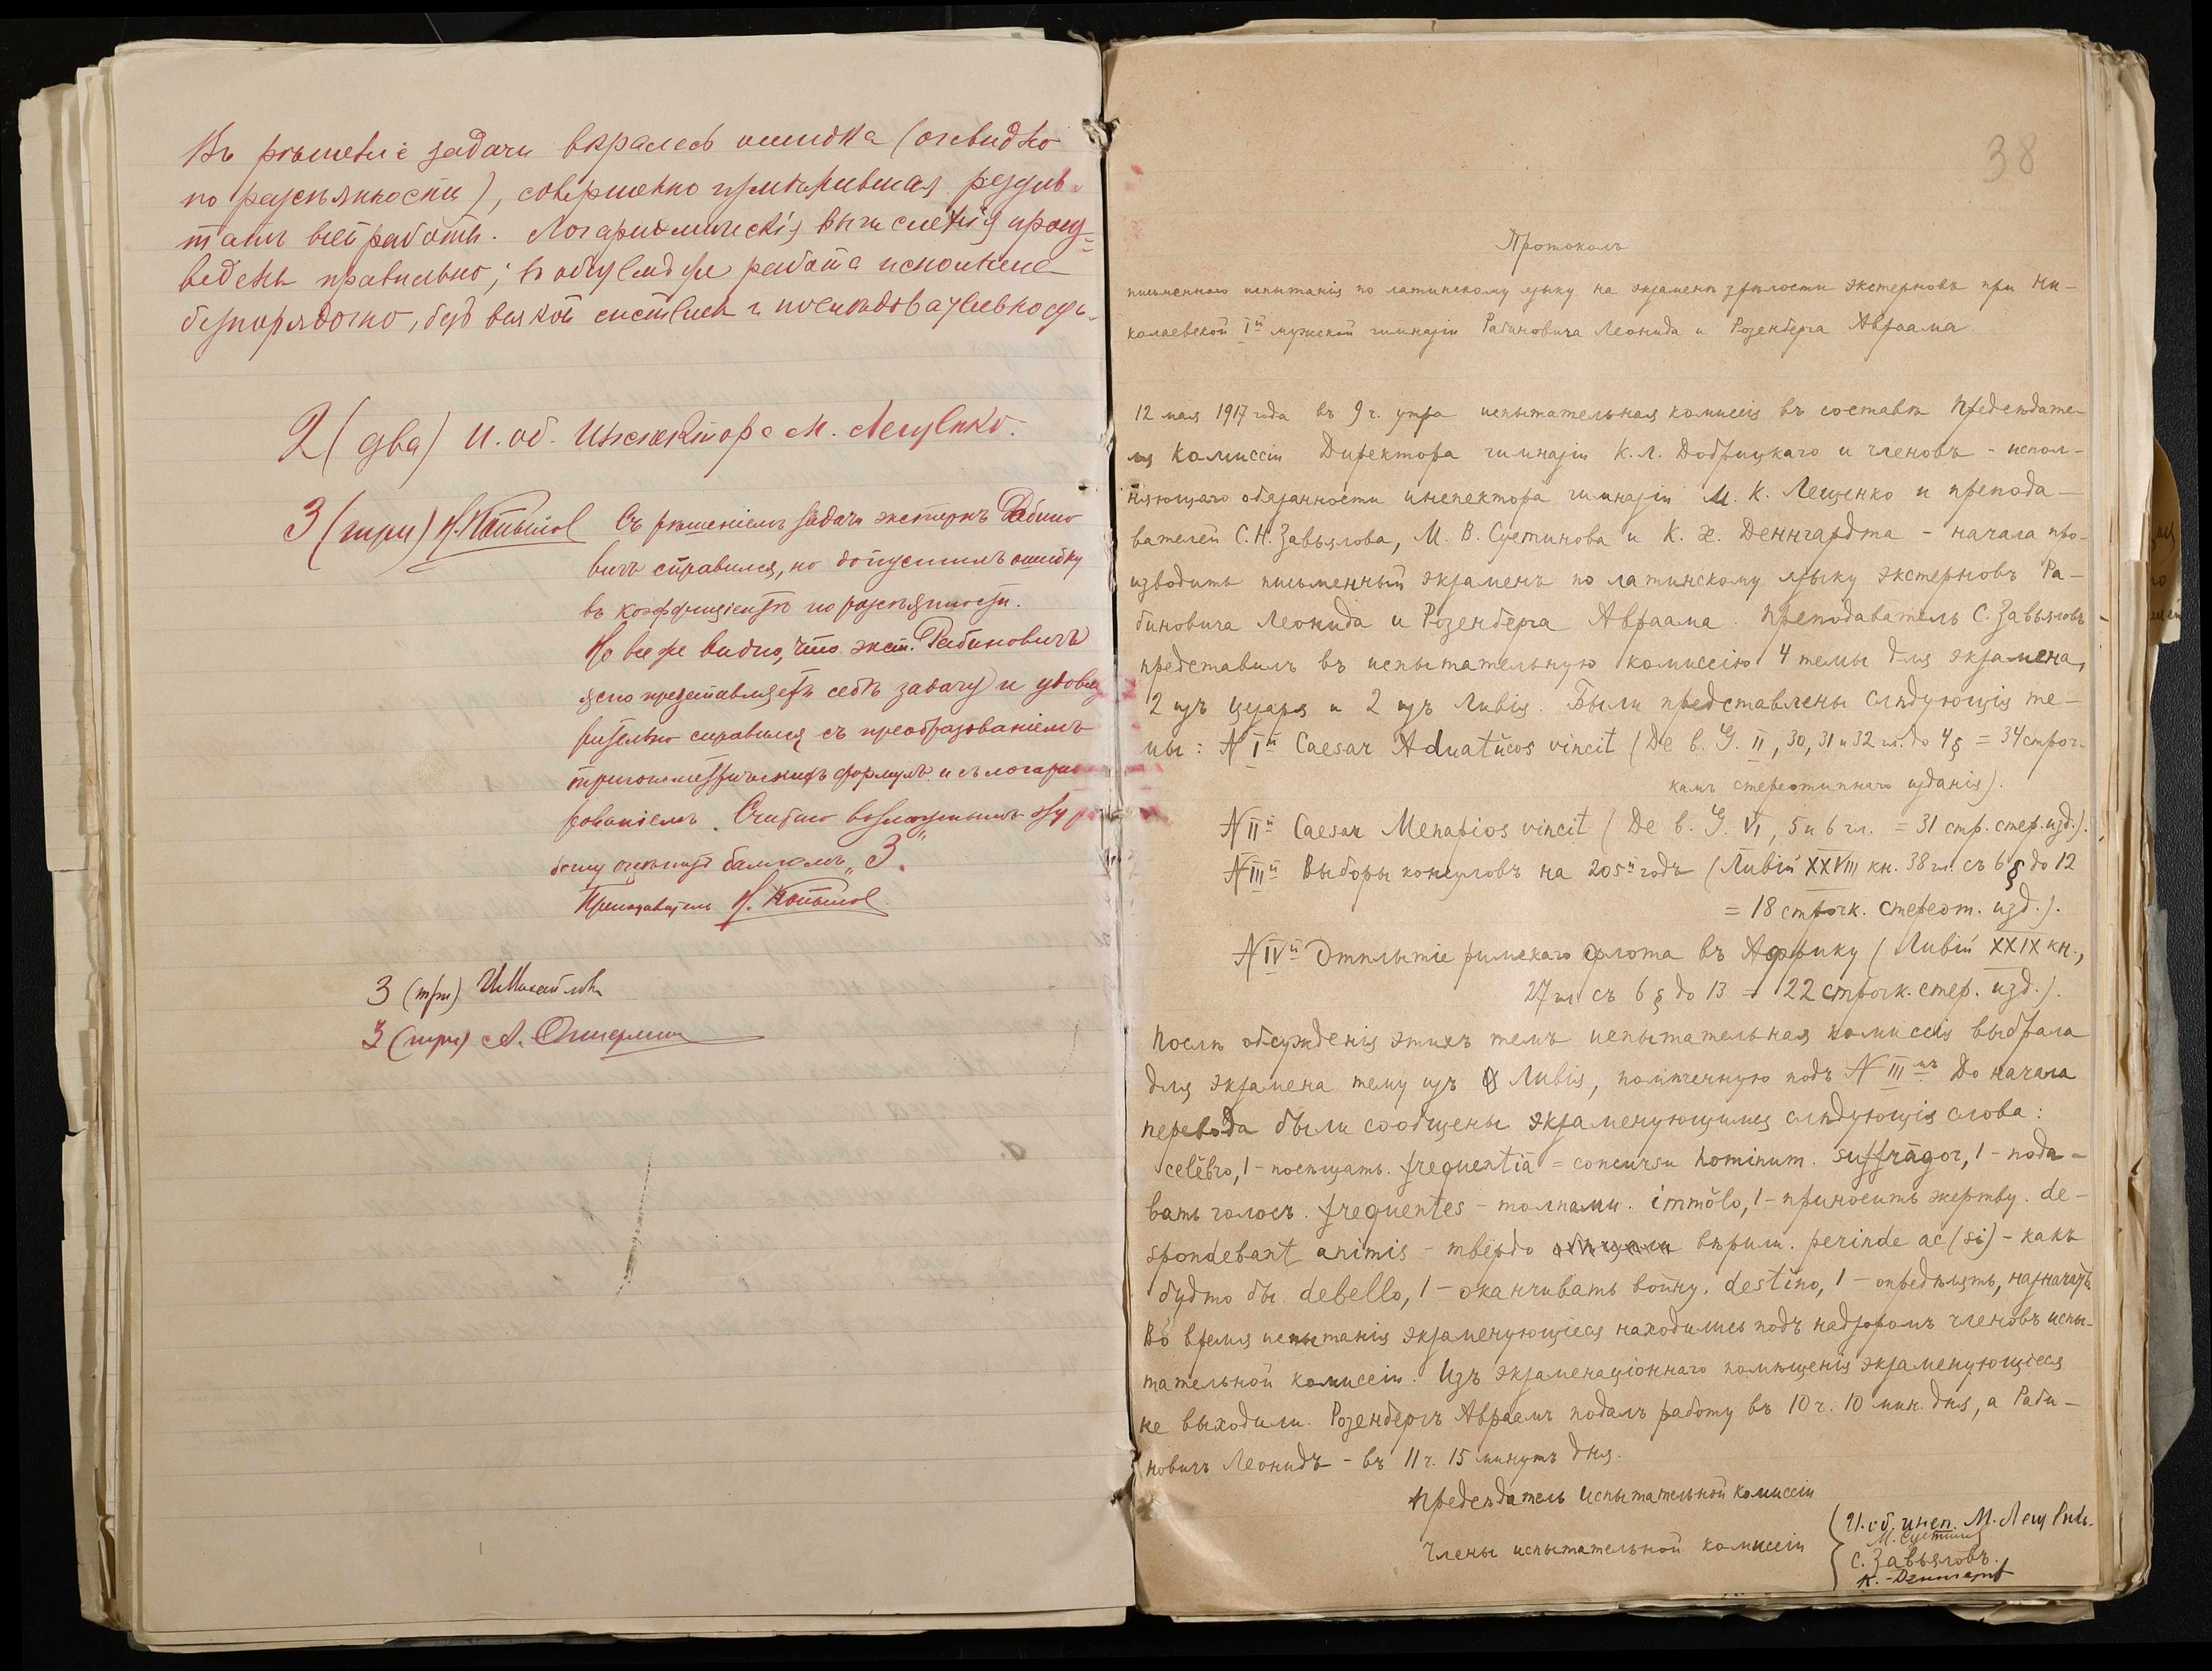 Въ рѣшеніе задачи вкралась ошибка (очевидно
по разсѣянности), совершенно
татъ всей работы. Логариѳмическія вычисленія произ-
ведены правильно; въ общемъ же работа исполнена
безпорядочно, безъ всякой системы и послѣдовательности.
2 (два) И. об. Инспектора М. Лещенко.
3 (три) Н. Копыловъ
Съ рѣшеніемъ задачи экстернъ Рабино
вичъ справился, но допустилъ ошибку
въ коэффиціентѣ по разсѣянности.
Но все же видно, что экст. Рабиновичъ
ясно представляетъ себѣ задачу и удовле
рительно справился съ преобразованіемъ
тригонометрическихъ формулъ и съ логариѳ
рованіемъ. Считаю возможнымъ эту р
боту оцѣнить балломъ „3".
Преподаватель Н. Копыловъ
3 (три)
3 (три) А.
38
Протоколъ
письменнаго испытанія по латинскому языку на экзаменѣ зрѣлости экстерновъ при Ни-
колаевской I-й мужской гимназіи Рабиновича Леонида и Розенберга Авраама
12 мая 1917 года въ 9 ч. утра испытательная комиссія въ составѣ предсѣдате-
ля комиссіи Директора гимназіи К. Л. Добрицкаго и членовъ - испол-
няющаго обязанности инспектора гимназіи М. К. Лещенко и препода-
вателей С. Н. Завьялова, М. В. Суетинова и К. Х. Деннгардта - начала про-
изводить письменный экзаменъ по латинскому языку экстерновъ Ра-
биновича Леонида и Розенберга Авраама. Преподаватель С. Завьяловъ -
представилъ въ испытательную комиссію 4 темы для экзамена,
2 изъ Цезаря и 2 изъ Ливія. Были представлены слѣдующія те-
мы: N I-й Caesar Aduatŭcos vincit (De b. G. II, 30, 31 и 32 гл. до 4 § = 34 строч-
камъ стереотипнаго изданія).
N II-й Caesar Menapios vincit (De b. G. VI, 5 и 6 гл. = 31 стр. стер. изд.).
N III-й Выборы консуловъ на 205-й годъ (Ливій XXVIII кн. 38 гл. съ 6 § до 12
= 18 строчк. стереот. изд.).
N IV-й Отплытіе римскаго флота въ Африку (Ливій XXIX кн.,
27 гл. съ 6 § до 13 = 22 строчк. стер. изд.).
Послѣ обсужденія этихъ темъ испытательная комиссія выбрала
для экзамена тему изъ Ливія, помѣченную подъ N III-мъ До начала
перевода были сообщены экзаменующимся слѣдующія слова:
celĕbro, 1 - посѣщать. frequentiā = concursu hominum. suffrāgor, 1 - пода-
вать голосъ. frequentes - толпами. immŏlo, 1 - приносить жертву. de-
spondebant animis - твердо вѣрили. perinde ac (si) - какъ
будто бы. debello, 1 - оканчивать войну. destĭno, 1 - опредѣлять, назначать
Во время испытанія экзаменующіеся находились подъ надзоромъ членовъ испы-
тательной комиссіи. Изъ экзаменаціоннаго помѣщенія экзаменующіеся
не выходили. Розенбергъ Авраамъ подалъ работу въ 10 ч. 10 мин. дня, а Раби-
новичъ Леонидъ - въ 11 ч. 15 минутъ дня.
Предсѣдатель испытательной комиссіи
Члены испытательной комиссіи
И. об. инсп. М. Лещенко.
М. Суетинов
С. Завьяловъ.
К. Деннгардт